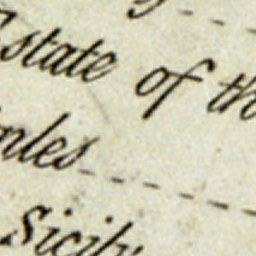 state of th
ples
Sicily